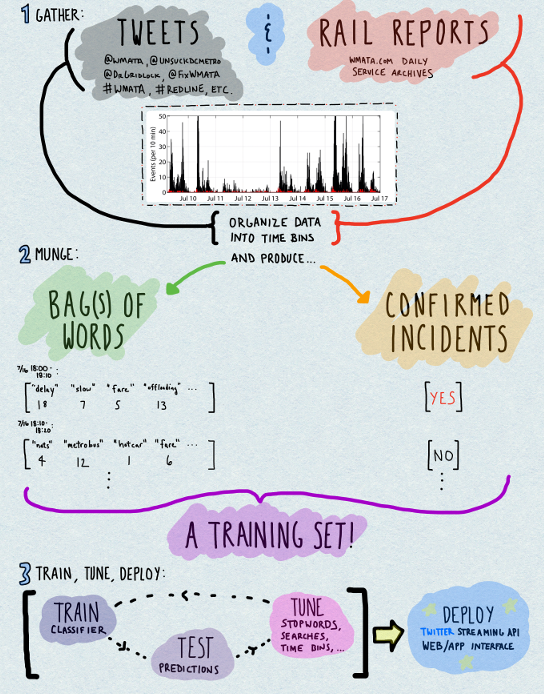 1 GATHER:
TWEETS
@WMATA, @UNSUCKDCMETRO
@DRGRIDLOCK, @FIXWMATA
#WMATA, #REDLINE, ETC.
&
RAIL REPORTS
WMATA.COM DAILY
SERVICE ARCHIVES
Events (per 10 min)
50
40
30
20
10
0
Jul 10 Jul 11 Jul 12 Jul 13 Jul 14 Jul 15 Jul 16 Jul 17
ORGANIZE DATA
INTO TIME BINS
AND PRODUCE...
2 MUNGE:
BAG(S) OF
WORDS
CONFIRMED
INCIDENTS
7/16 18:00-
18:10 :
"delay" "slow" "fare" "offloading" ...
18 7 5 13
[YES]
7/16 18:10-
18:20 :
"nats" "metrobus" "hotcar" "fare" ...
4 12 1 6
[NO]
A TRAINING SET!
3 TRAIN, TUNE, DEPLOY:
TRAIN
CLASSIFIER
TEST
PREDICTIONS
TUNE
STOPWORDS,
SEARCHES,
TIME BINS, ...
DEPLOY
TWITTER STREAMING API
WEB/APP INTERFACE